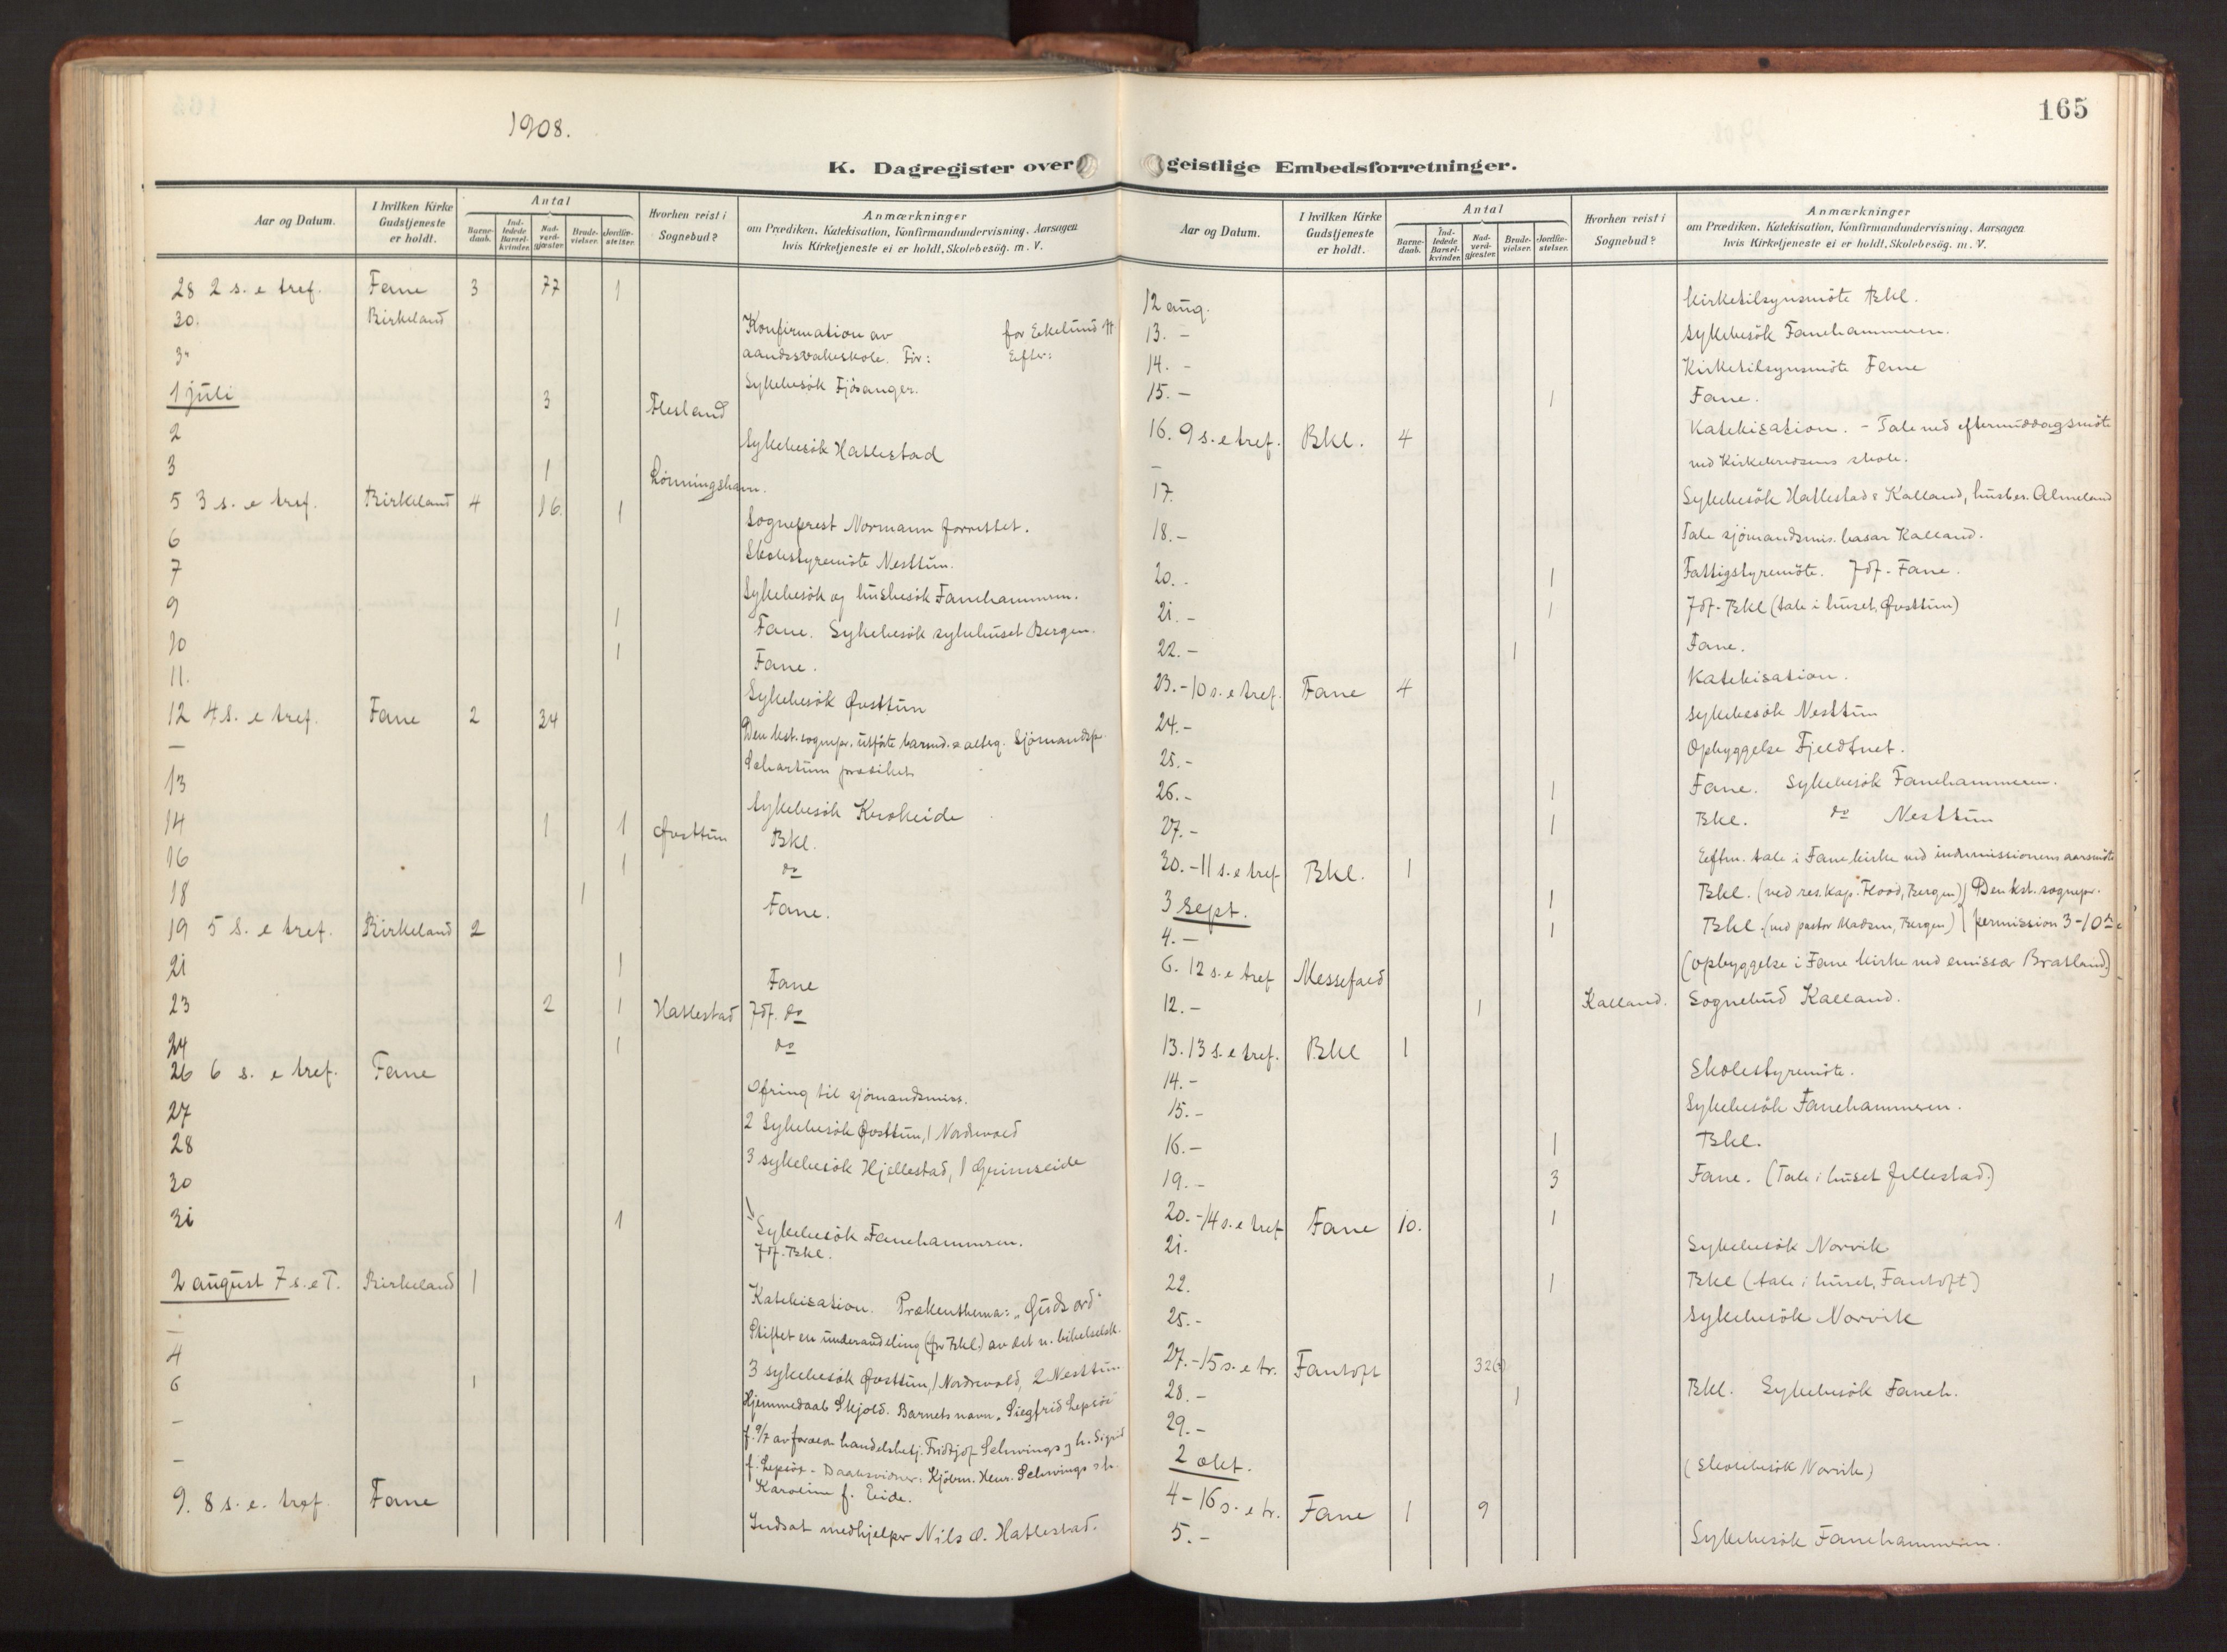 1908.
K. Dagregister over
Aar og Datum.
I hvilken Kirke
Gudstjeneste
er holdt.
Antal
Barne-
daab.
Ind-
ledede
Barsel-
kvinder.
Nad-
verd-
gjæster.
Brude-
vielser.
Jordfæ-
stelser.
Hvorhen reist i
Sognebud?
Anmærkninger
om Prædiken, Katekisation, Konfirmandundervisning, Aarsagen
hvis Kirketjeneste ei er holdt, Skolebesøg. m. V.
28 2 s. e tref. Fane 3 77 1
30. Birkeland
Konfirmation av for Eikelund
aandssvakeskole. Før: Efter:
Sykebesök Fjösanger.
1 juli 3 Flesland
2 Sykebesök Hatlestad
3 1 Lönningshavn.
5 3 s. e tref. Birkeland 4 16. 1
Sogneprest Normann forrettet.
6 Skolestyremöte Nesttun.
7 Sykebesök og husbesök Fanehammeren.
9 1 Fane. Sykebesök sykehuset Bergen.
10 1 Fane.
11. Sykebesök Øvsttun
12 4 s. e tref. Fane 2 34
Den kst. sognepr. utförte barned. & alterg. Sjömandspr.
— Schartum prædiket
13 Sykebesök Krokeide
14 1 1 Øvsttun Bkl.
16 1 do
18 1 Fane.
19 5 s. e tref. Birkeland 2
21 1 Fane
23 2 1 Hatlestad Jdf. do
24 1 do
26 6 s. e tref. Fane
Ofring til sjömandsmiss.
27 2 Sykebesök Øvsttun, 1 Nordrevold
28 3 sykebesök Hjellestad, 1 Grimseide
30 Sykebesök Fanehammeren.
31 1 Jdf. Bkl.
2 august 7 s. e T. Birkeland 1
Katekisation. Prækenthema: "Guds ord"
— Stiftet en underavdeling (for Bkl.) av det n. bibelselsk.
4 3 sykebesök Øvsttun, 1 Nordrevold, 2 Nesttun
6 1 Hjemmedaab Skjold. Barnets navn "Siegfrid Lepsöe"
— f. 9/7 av foræln handelsbetj. Fridtjof Schwings og h. Sigrid
— f. Lepsöe - Daabsvidner: Kjöbm. Henr. Schwings & h.
Karoline f. Eide.
9. 8 s. e. tref. Fane
Indsat medhjelper Nils O. Hatlestad.
165
geistlige Embedsforretninger.
Aar og Datum.
I hvilken Kirke
Gudstjeneste
er holdt.
Antal
Barne-
daab.
Ind-
ledede
Barsel-
kvinder.
Nad-
verd-
gjæster.
Brude-
vielser.
Jordfæ-
stelser.
Hvorhen reist i
Sognebud?
Anmærkninger
om Prædiken, Katekisation, Konfirmandundervisning, Aarsagen
hvis Kirketjeneste ei er holdt, Skolebesøg. m. V.
12 aug. Kirketilsynsmöte Bkl.
13. - Sykebesök Fanehammeren.
14. - Kirketilsynsmöte Fane
15. - 1 Fane.
16. 9 s. e tref. Bkl. 4 Katekisation. - Tale ved eftermiddagsmöte
— ved Kirkekredsens skole.
17. Sykebesök Hatlestad & Kalland, husbes. Almeland
18. - Tale sjömandsmis. basar Kalland.
20. - 1 Fattigstyremöte. Jdf. - Fane.
21. - 1 Jdf. - Bkl (tale i huset, Øvsttun)
22. - 1 Fane.
23. - 10 s. e tref. Fane 4 Katekisation.
24. - Sykebesök Nesttun
25. - Opbyggelse Fjeldtuet.
26. - 1 Fane. Sykebesök Fanehammeren.
27. - 1 Bkl. do Nesttun
30. - 11 s. e tref Bkl. 1 Eftm. tale i Fane kirke ved indremissionens aarsmöte
3 sept. 1 Bkl. (ved res. kap. Flood, Bergen) | Den kst. sognepr.
4. - 1 Bkl. (ved pastor Madsen, Bergen) | permission 3-10de
6. 12 s. e tref Messefald (Opbyggelse i Fane kirke ved emissær Bratland)
12. - 1 Kalland. Sognebud Kalland.
13. 13 s. e tref. Bkl 1
14. - Skolestyremöte.
15. - Sykebesök Fanehammeren.
16. - 1 Bkl.
19. - 3 Fane. (Tale i huset Jellestad.)
20. - 14 s. e tref Fane 10. 1
21. Sykebesök Norvik
22. 1 Bkl (tale i huset, Fantoft)
25. - Sykebesök Norvik
27. - 15 s. e tr. Fantoft 32
28. - 1 Bkl. Sykebesök Faneh.
29. -
2 okt. (Skolebesök Norvik)
4 - 16 s. e tr. Fane 1 9
5. - Sykebesök Fanehammeren.